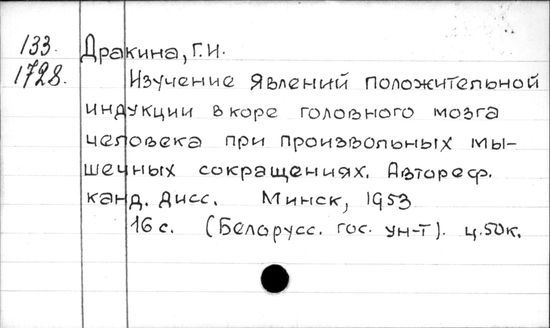 133.
1728.
Дракина, Г.И.
Изучение явлений положительной
индукции в коре головного мозга
человека при произвольных мы-
шечных сокращениях. Автореф.
канд. дисс. Минск, 1953
16 с. (Белорусс. гос. ун-т). ц. 50к.